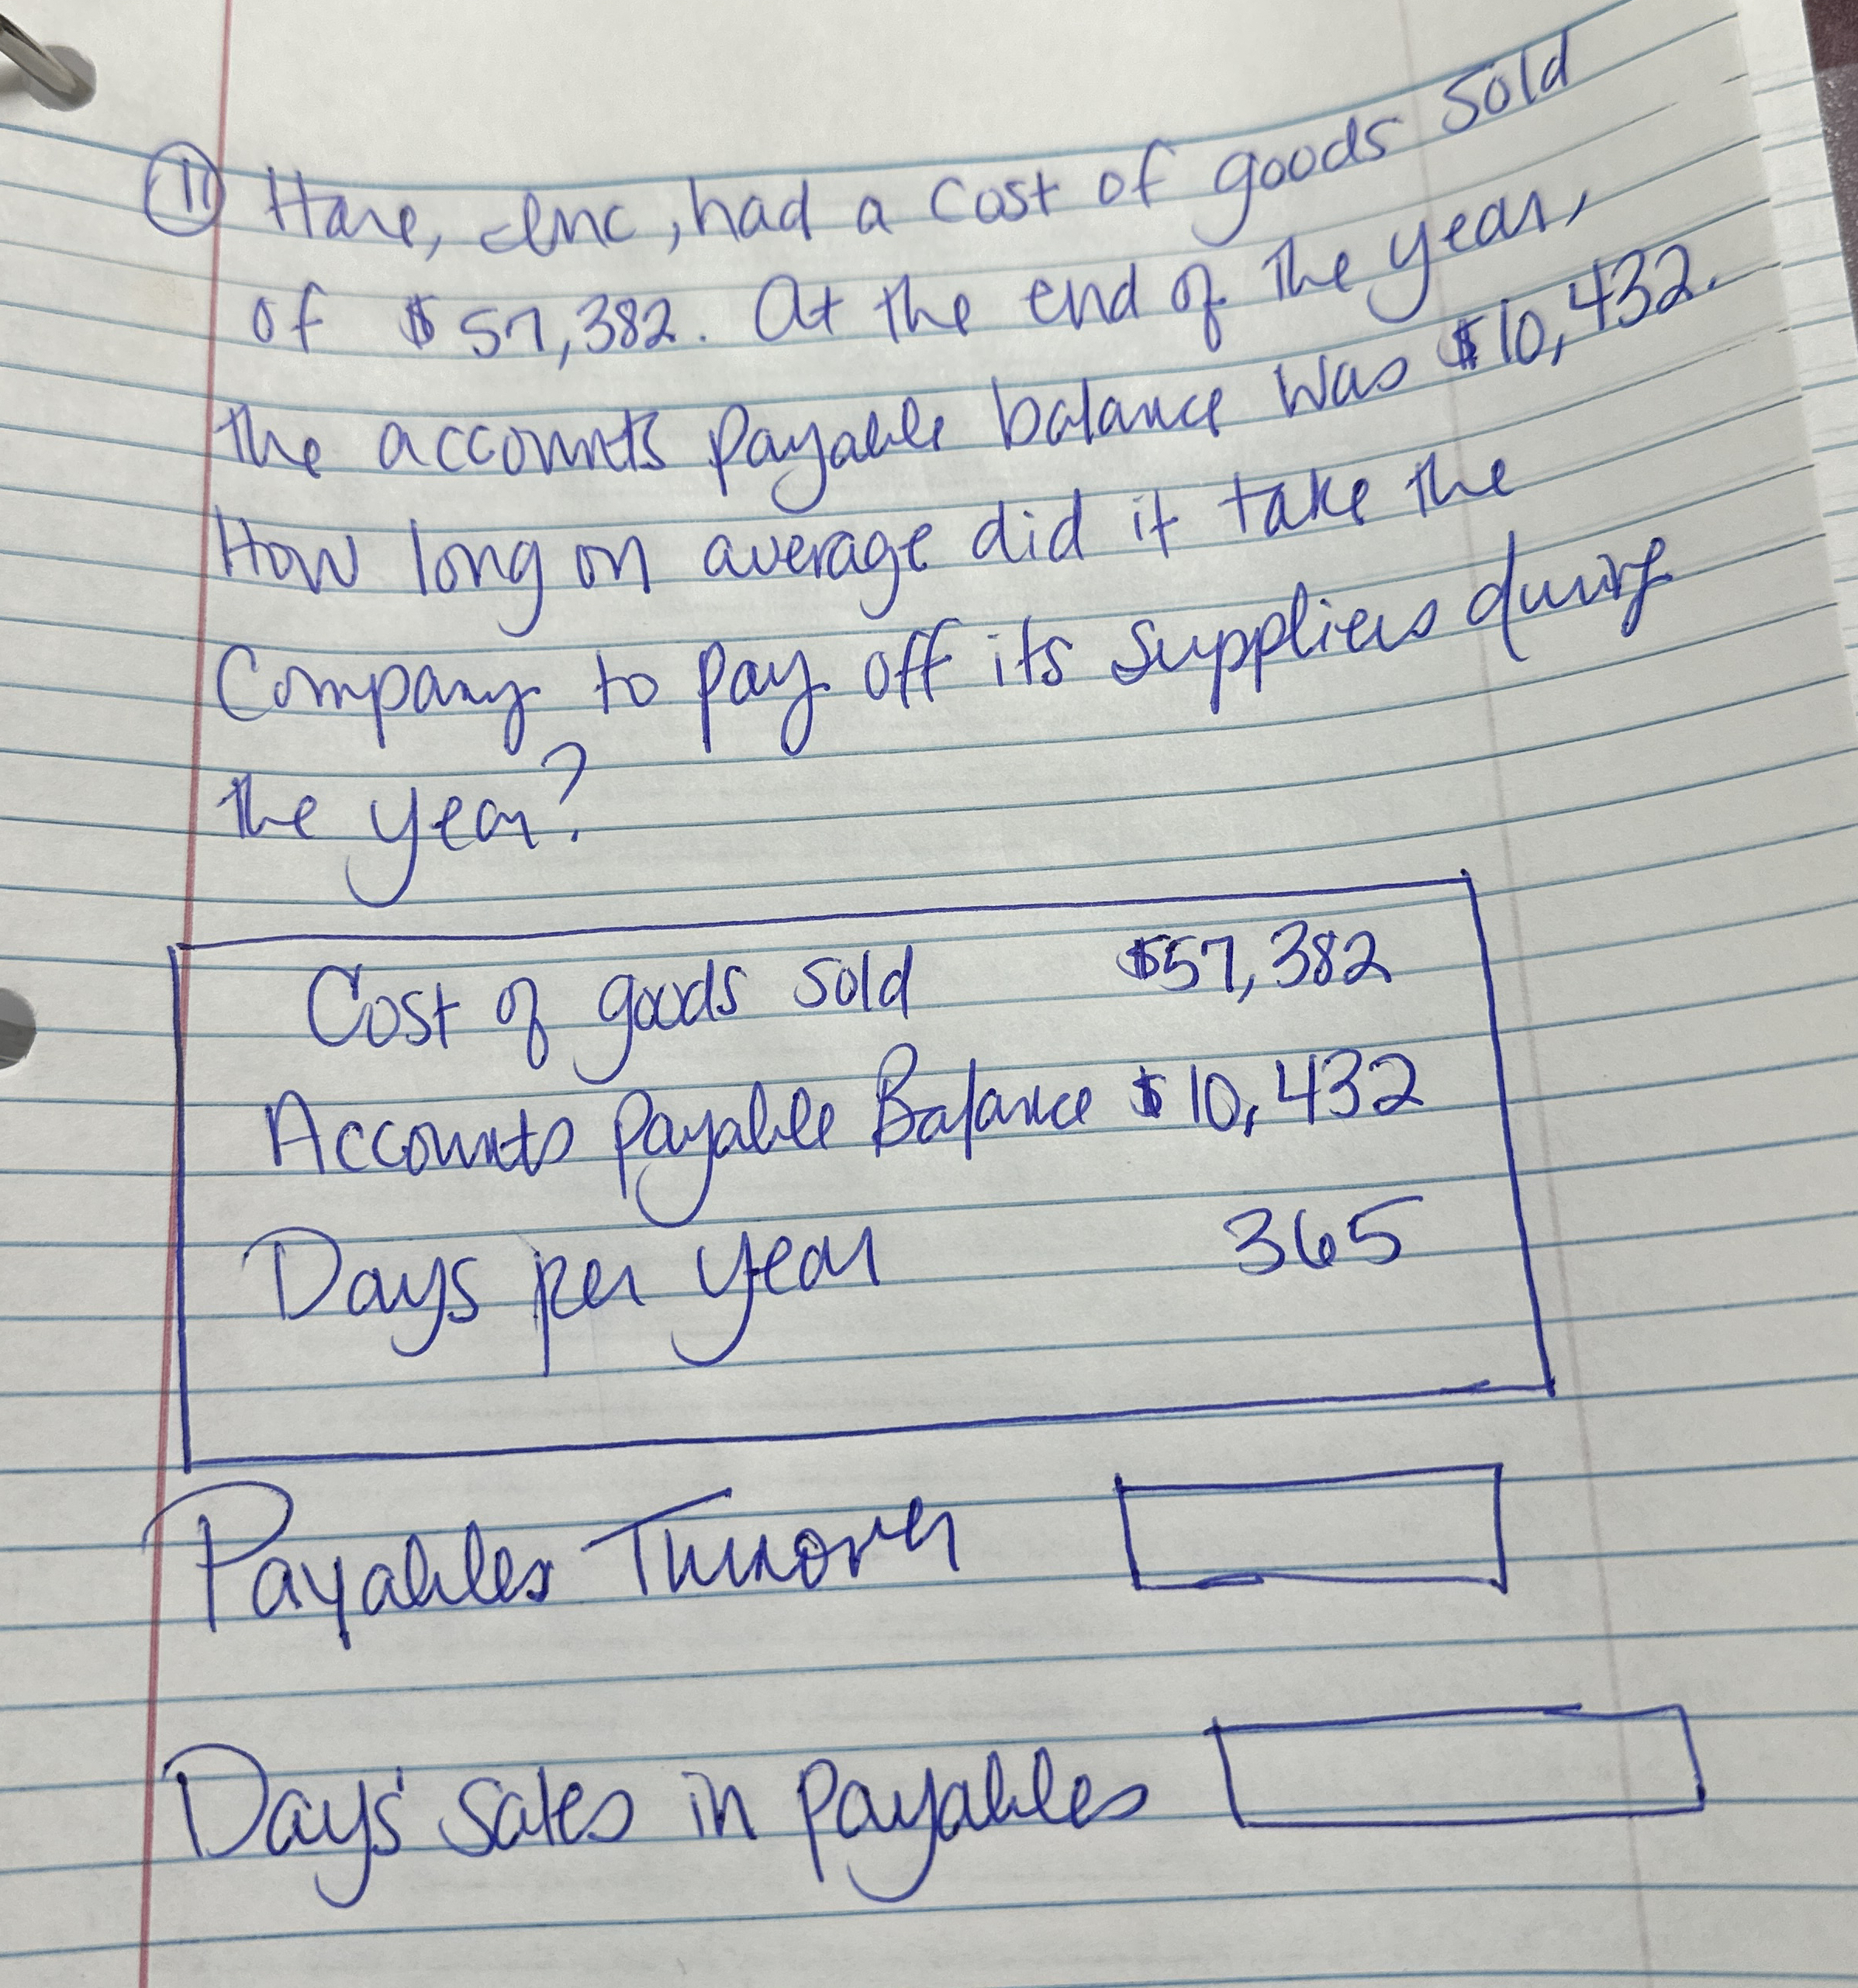 11 Hare, Inc, had a cost of goods sold
of $57,382. At the end of the year,
the accounts payable balance was $10,432.
How long on average did it take the
Company to pay off its suppliers during
the year?
Cost of goods sold $57,382
Accounts payable Balance $10,432
Days per year 365
Payables Turnover
Days' sales in payables